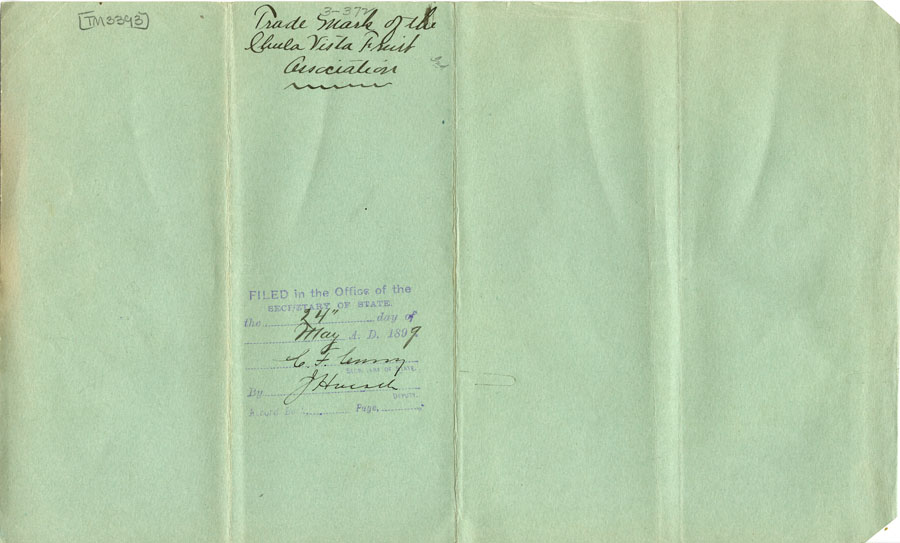 TM3393
3-372
Trade Mark of the
Chula Vista Fruit
Association
FILED in the Office of the
SECRETARY OF STATE.
the 24" day of
May A. D. 1899
C. F. Curry
SECRETARY OF STATE.
By J Hoesch
DEPUTY.
Page,